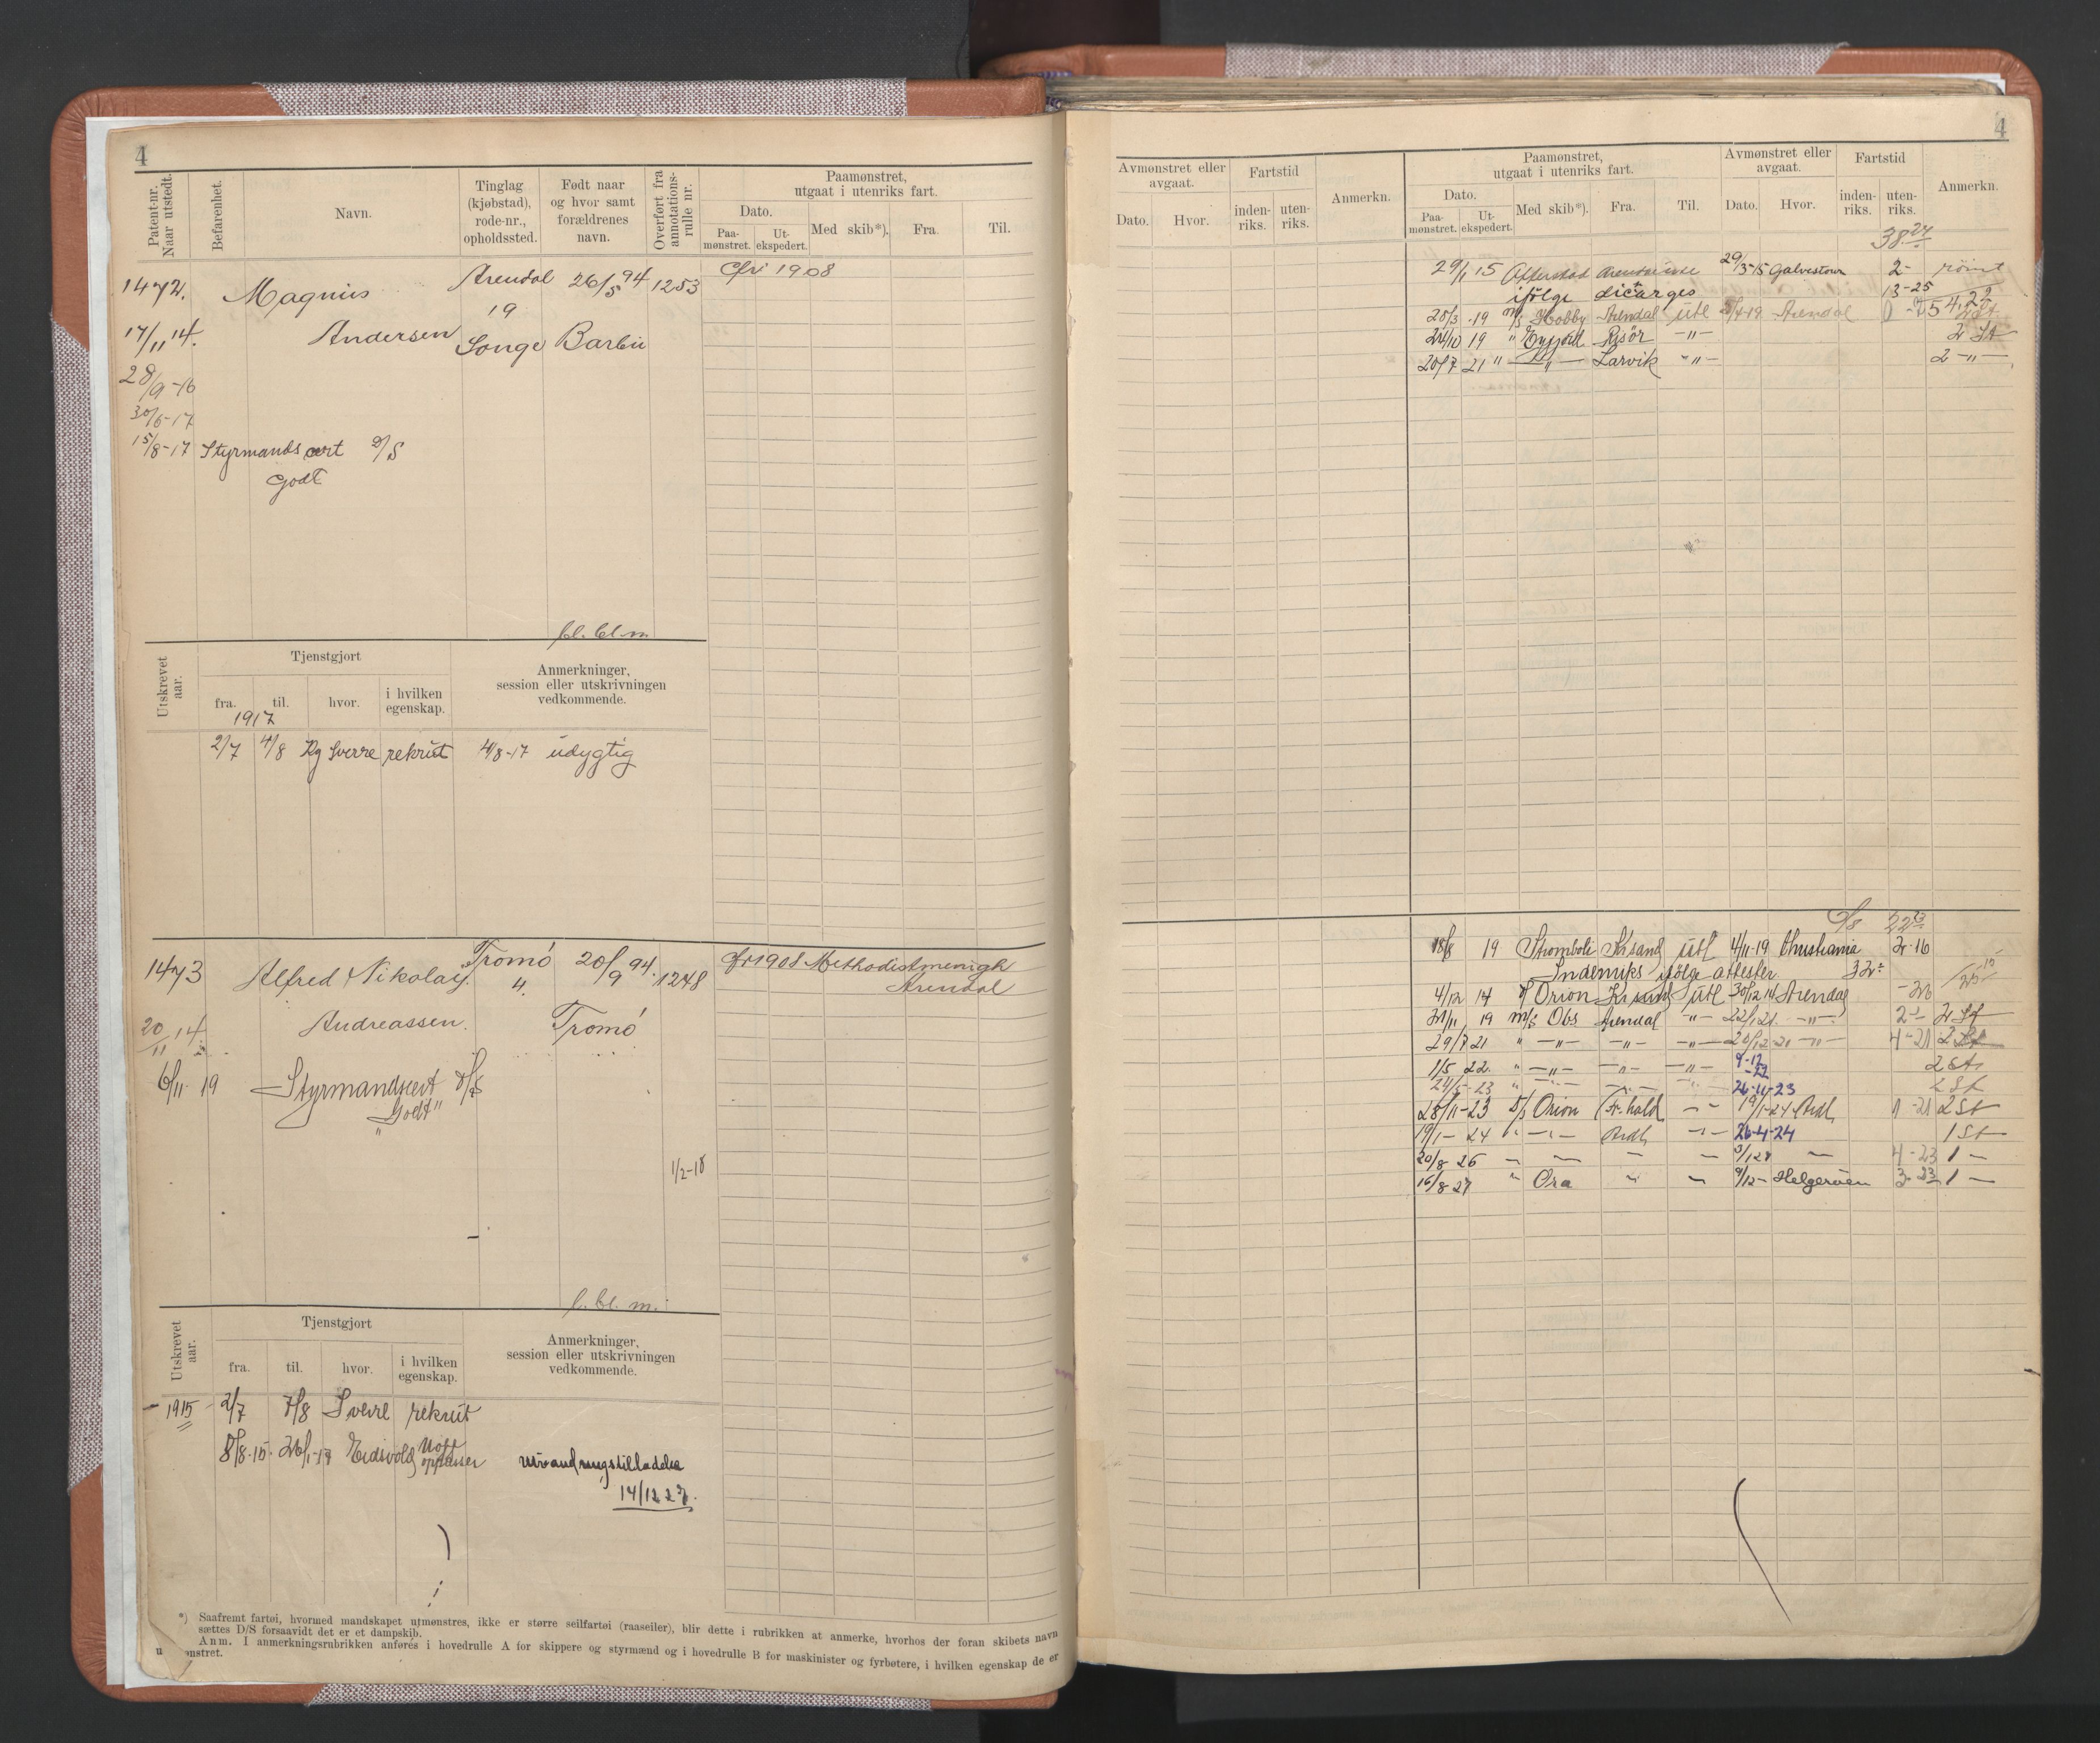 4
Patent-nr. Naar utstedt.
Befarenhet.
Navn.
Tinglag (kjøbstad), rode-nr., opholdssted.
Født naar og hvor samt forældrenes navn.
Overført fra annotations-rulle nr.
Paamønstret, utgaat i utenriks fart.
Dato.
Paa-mønstret.
Ut-ekspedert.
Med skib*).
Fra.
Til.
1472. Magnus Arendal 26/5 94 1253 Cfr 1908
19
17/11 14. Andersen Songe Barbu
28/9-16
30/6-17
15/8-17 Styrmands cert D/S
Godt
bl. bl. m
Utskrevet aar.
Tjenstgjort
fra. til. hvor. i hvilken egenskap.
Anmerkninger, session eller utskrivningen vedkommende.
1917
2/7 4/8 Kg Sverre rekrut 4/8-17 udygtig
1473 Alfred Nikolay Tromö 20/9 94. 1248 Cfr 1908 Methodistmenigh
4. Arendal
20/11 14. Andreassen. Tromö
6/11 19 Styrmandscert D/S
"Godt"
1/2-18
l. bl. m.
Utskrevet aar.
Tjenstgjort
fra. til. hvor. i hvilken egenskap.
Anmerkninger, session eller utskrivningen vedkommende.
1915 2/7 7/8 Sverre rekrut
8/8-15. 26/1-17 Eidsvold opvasser
Utvandringstilladelse
14/12 27.
*) Saafremt fartøi, hvormed mandskapet utmønstres, ikke er større seilfartøi (raaseiler), blir dette i rubrikken at anmerke, hvorhos der foran skibets navn
sættes D/S forsaavidt det er et dampskib.
Anm. I anmerkningsrubrikken anføres i hovedrulle A for skippere og styrmænd og i hovedrulle B for maskinister og fyrbøtere, i hvilken egenskap de er
u ønstret.
4
Avmønstret eller avgaat.
Dato. Hvor.
Fartstid
inden-riks. uten-riks.
Anmerkn.
Paamønstret, utgaat i utenriks fart.
Dato.
Paa-mønstret. Ut-ekspedert.
Med skib*). Fra. Til.
Avmønstret eller avgaat.
Dato. Hvor.
Fartstid
inden-riks. uten-riks.
Anmerkn.
38 27
29/1 15 29/3-15 Galvestown 2- römt
ifölge dicharges 13-25
28/3 19 M/S Hobby Arendal utl 5/4-19 Arendal
24/10 19 " Risör -"- 2 St
20/7 21 " -"- Larvik -"- 2 -"-
D/S 22 23
18/8 19 Stromboli Krsand utl 4/11-19 Christiania 2-16
Indenriks ifölge attester. 32
4/12 14 D/ Orion Krsund utl 30/12 14 Arendal -26
19 M/S Obs Arendal -"- 22/1 21. -"- 2 St
29/7 21 " -"- -"- -"- 20/12 21 -"- 4-21 2 St
1/5 22. " -"- -"- -"- 9-12-22 2 St
24/5-23 " 26-11-23 2 St
28/11-23 D/S Orion Fr.hald -"- 19/1-24 Ardl 1-21 2 St
19/1-24 " -"- Ardl -"- 26-4-24 1 St
20/8 26 — — — — — 4-23 1 —
16/8 27 " Ora " — 9/12- Helgeroen 3-23 1 —